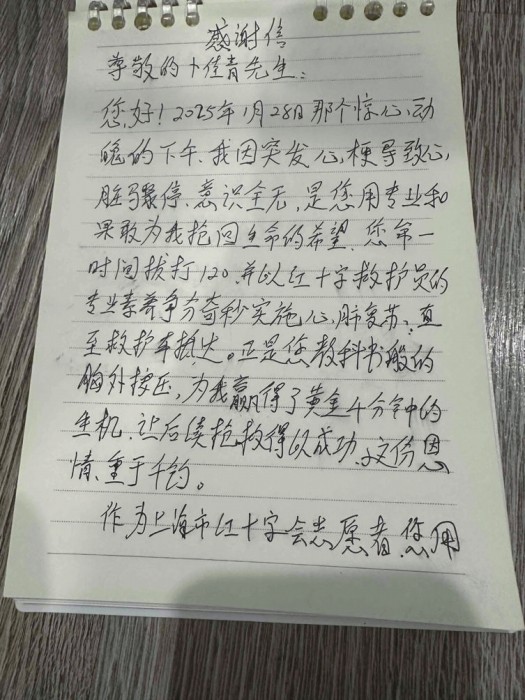 感谢信
尊敬的卜佳青先生：
您好！2025年1月28日那个惊心动
魄的下午、我因突发心梗导致心
脏骤停、意识全无，是您用专业和
果敢为我抢回生命的希望、您第一
时间拔打120、并以红十字救护员的
专业素养争分夺秒实施心肺复苏，直
至救护车抵达。正是您教科书般的
胸外按压，为我赢得了黄金4分钟中的
生机、让后续抢救得以成功、这份恩
情重于千钧。
作为上海市红十字会志愿者、您用